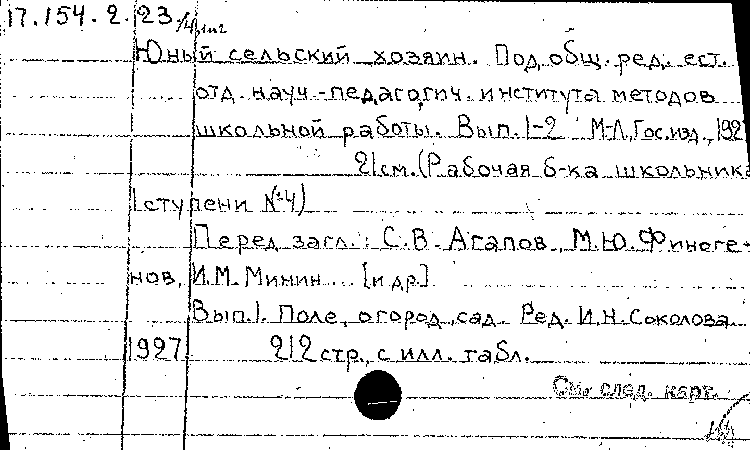 17.154.2.23
Юный сельский хозяин. Под общ. ред. ест.
отд. науч.-педагогич. института методов
школьной работы. Вып. 1-2 М-Л, Гос. изд., 192
21 см. (Рабочая б-ка школьника
I ступени №4)
Перед загл.: С.В. Агапов, М.Ю. Финоге-
нов, И.М. Минин... [и др.]
Вып. 1. Поле, огород, сад. Ред. И.Н. Соколова
1927. 212 стр., с илл. табл.
См. след. карт.